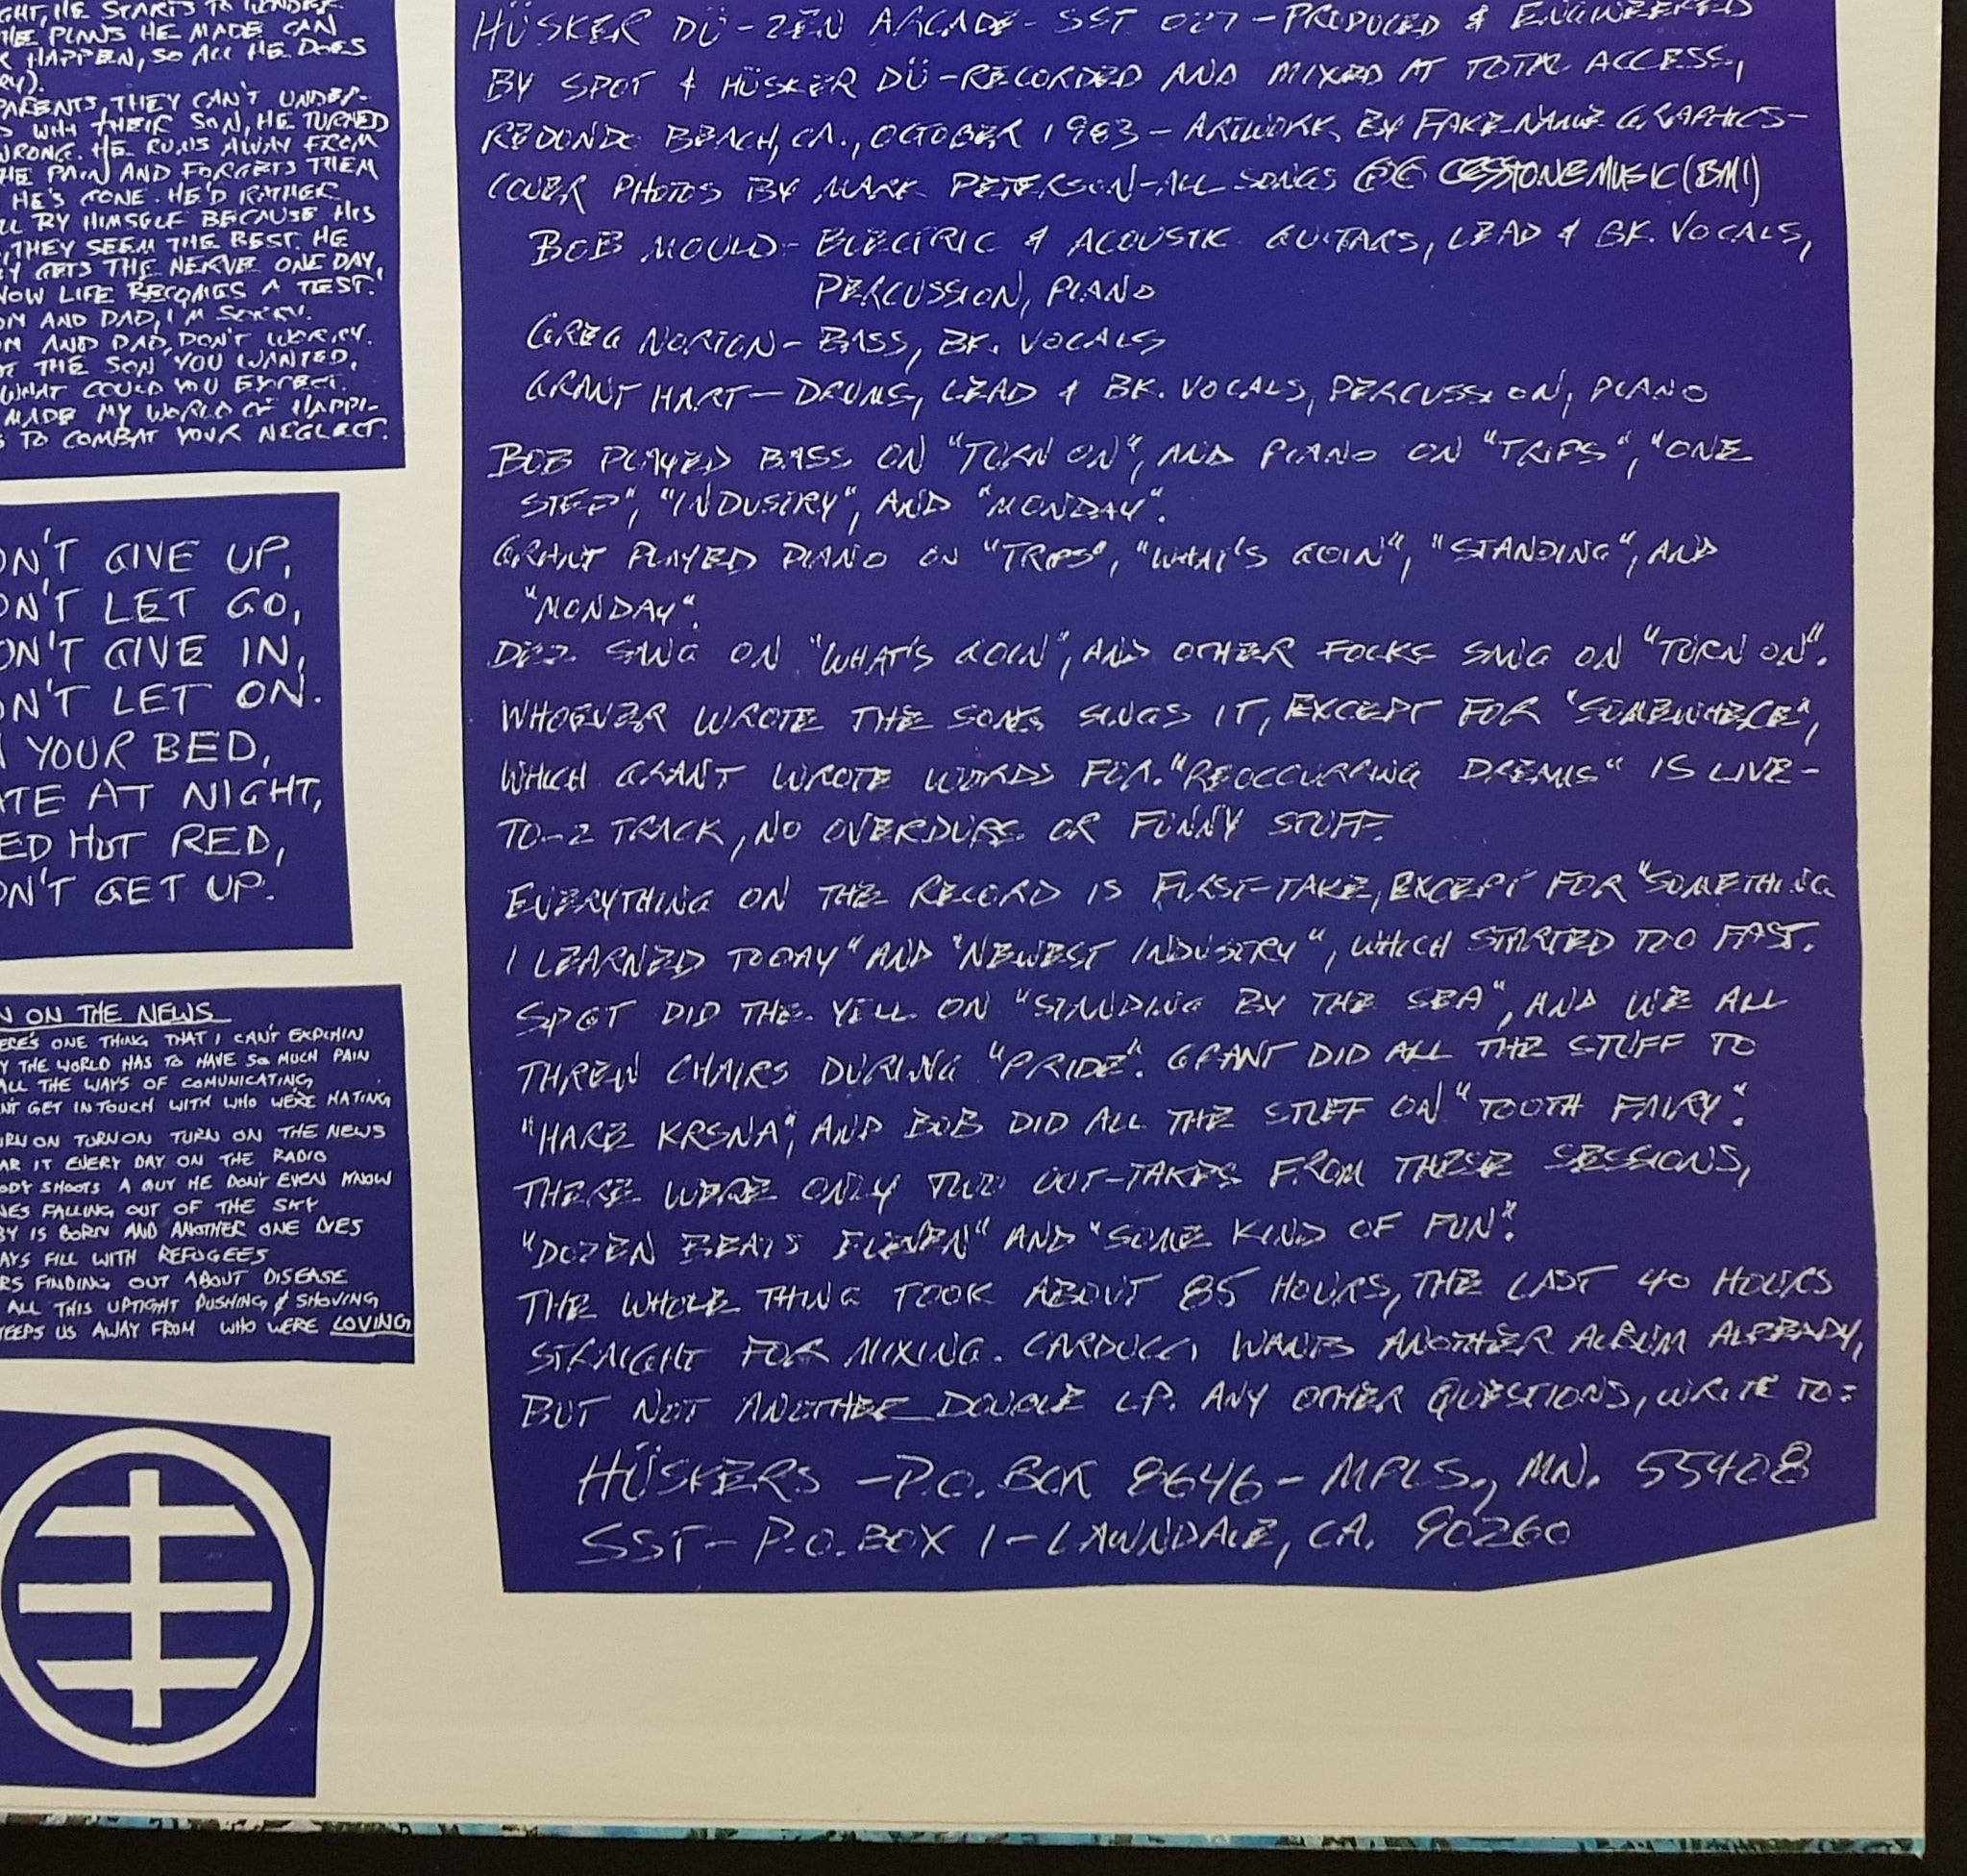 GHT, HE STARTS TO WONDER
THE PLANS HE MADE CAN
HAPPEN, SO ALL HE DOES
RY).
PARENTS, THEY CAN'T UNDER-
WITH THEIR SON, HE TURNED
WRONG. HE RUNS AWAY FROM
HE PAIN AND FORGETS THEM
HE'S GONE. HE'D RATHER
LL BY HIMSELF BECAUSE HIS
, THEY SEEM THE BEST. HE
Y GETS THE NERVE ONE DAY,
NOW LIFE BECOMES A TEST.
OM AND DAD, I'M SORRY.
OM AND DAD, DON'T WORRY.
THE SON YOU WANTED,
WHAT COULD YOU EXPECT.
MADE MY WORLD OF HAPPI-
S TO COMBAT YOUR NEGLECT.
ON'T GIVE UP,
ON'T LET GO,
ON'T GIVE IN,
ON'T LET ON.
YOUR BED,
ATE AT NIGHT,
ED HOT RED,
ON'T GET UP.
N ON THE NEWS
ERE'S ONE THING THAT I CAN'T EXPLAIN
Y THE WORLD HAS TO HAVE SO MUCH PAIN
ALL THE WAYS OF COMUNICATING
N'T GET IN TOUCH WITH WHO WE'RE HATING
URN ON TURN ON TURN ON THE NEWS
AR IT EVERY DAY ON THE RADIO
ODY SHOOTS A GUY HE DON'T EVEN KNOW
NES FALLING OUT OF THE SKY
BY IS BORN AND ANOTHER ONE DIES
AYS FILL WITH REFUGEES
RS FINDING OUT ABOUT DISEASE
ALL THIS UPTIGHT PUSHING & SHOVING
KEEPS US AWAY FROM WHO WE'RE LOVING
HÜSKER DÜ - ZEN ARCADE - SST 027 - PRODUCED & ENGINEERED
BY SPOT & HÜSKER DÜ - RECORDED AND MIXED AT TOTAL ACCESS,
REDONDO BEACH, CA., OCTOBER 1983 - ARTWORK BY FAKE NAME GRAPHICS -
COVER PHOTOS BY MARK PETERSON - ALL SONGS ©℗ CESSTONE MUSIC (BMI)
BOB MOULD - ELECTRIC & ACOUSTIC GUITARS, LEAD & BK. VOCALS,
PERCUSSION, PIANO
GREG NORTON - BASS, BK. VOCALS
GRANT HART - DRUMS, LEAD & BK. VOCALS, PERCUSSION, PIANO
BOB PLAYED BASS ON "TURN ON", AND PIANO ON "TRIPS", "ONE
STEP", "INDUSTRY", AND "MONDAY".
GRANT PLAYED PIANO ON "TRIPS", "WHAT'S GOIN", "STANDING", AND
"MONDAY".
DEZ SANG ON "WHAT'S GOIN", AND OTHER FOLKS SANG ON "TURN ON".
WHOEVER WROTE THE SONG SINGS IT, EXCEPT FOR "SOMEWHERE",
WHICH GRANT WROTE WORDS FOR. "REOCCURRING DREAMS" IS LIVE-
TO-2 TRACK, NO OVERDUBS OR FUNNY STUFF.
EVERYTHING ON THE RECORD IS FIRST-TAKE, EXCEPT FOR "SOMETHING
I LEARNED TODAY" AND "NEWEST INDUSTRY", WHICH STARTED TOO FAST.
SPOT DID THE YELL ON "STANDING BY THE SEA", AND WE ALL
THREW CHAIRS DURING "PRIDE". GRANT DID ALL THE STUFF TO
"HARE KRSNA", AND BOB DID ALL THE STUFF ON "TOOTH FAIRY".
THERE WERE ONLY TWO OUT-TAKES FROM THESE SESSIONS,
"DOZEN BEATS ELEVEN" AND "SOME KIND OF FUN".
THE WHOLE THING TOOK ABOUT 85 HOURS, THE LAST 40 HOURS
STRAIGHT FOR MIXING. CARDUCCI WANTS ANOTHER ALBUM ALREADY,
BUT NOT ANOTHER DOUBLE LP. ANY OTHER QUESTIONS, WRITE TO:
HÜSKERS - P.O. BOX 8646 - MPLS., MN. 55408
SST - P.O. BOX 1 - LAWNDALE, CA. 90260